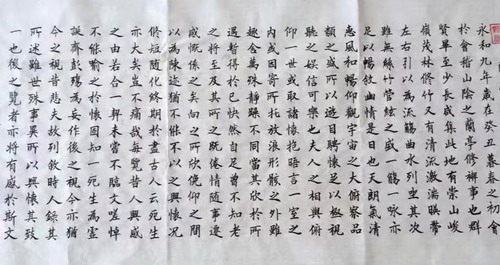 永和九年歲在癸丑暮春之初會
於會稽山陰之蘭亭修禊事也群
賢畢至少長咸集此地有崇山峻
嶺茂林修竹又有清流激湍暎帶
左右引以為流觴曲水列坐其次
雖無絲竹管絃之盛一觴一詠亦
足以暢敘幽情是日也天朗氣清
惠風和暢仰觀宇宙之大俯察品
類之盛所以遊目騁懷足以極視
聽之娛信可樂也夫人之相與俯
仰一世或取諸懷抱晤言一室之
內或因寄所托放浪形骸之外雖
趣舍萬殊靜躁不同當其欣於所
遇暫得於己快然自足曾不知老
之將至及其所之既倦情隨事遷
感慨係之矣向之所欣俛仰之間
以為陳迹猶不能不以之興懷況
修短隨化終期於盡古人云死生
亦大矣豈不痛哉每覽昔人興感
之由若合一契未嘗不臨文嗟悼
不能喻之於懷固知一死生為虛
誕齊彭殤為妄作後之視今亦猶
今之視昔悲夫故列敘時人錄其
所述雖世殊事異所以興懷其致
一也後之覽者亦將有感於斯文